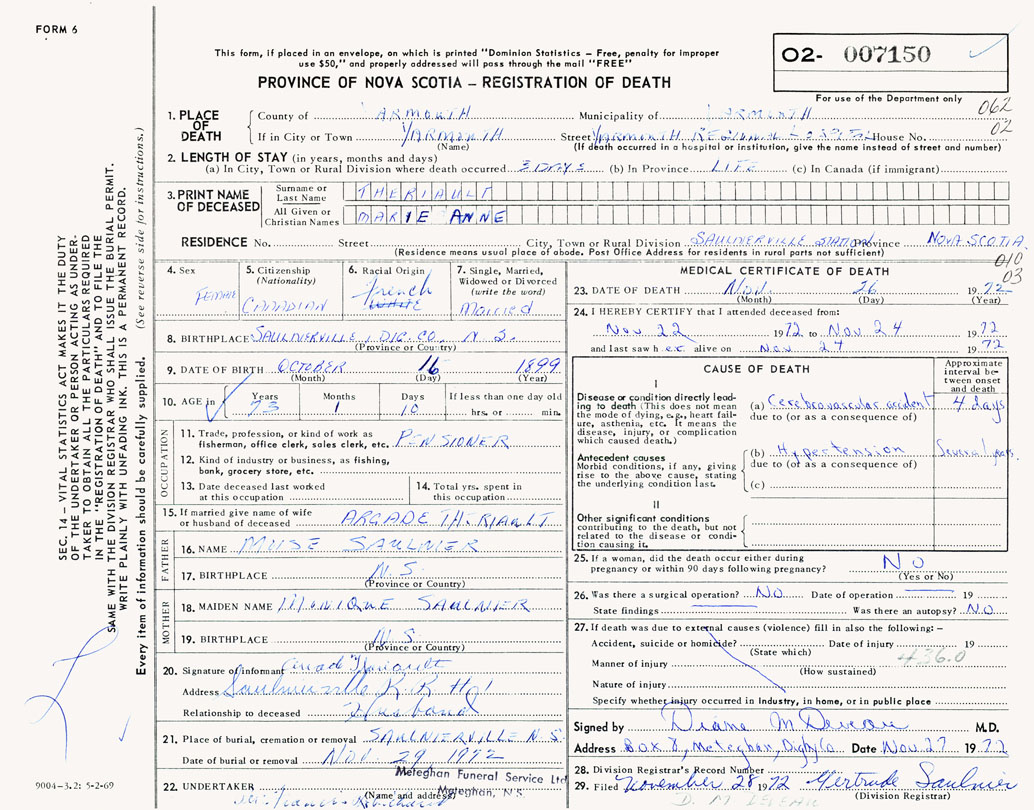 FORM 6
This form, if placed in an envelope, on which is printed "Dominion Statistics – Free, penalty for improper
use $50," and properly addressed will pass through the mail "FREE"
PROVINCE OF NOVA SCOTIA – REGISTRATION OF DEATH
02- 007150
For use of the Department only
062
02
1. PLACE OF DEATH
County of YARMOUTH Municipality of YARMOUTH
If in City or Town YARMOUTH Street YARMOUTH REGIONAL HOSPITAL House No.
(Name) (If death occurred in a hospital or institution, give the name instead of street and number)
2. LENGTH OF STAY (in years, months and days)
(a) In City, Town or Rural Division where death occurred 3 DAYS (b) In Province LIFE (c) In Canada (if immigrant)
3. PRINT NAME OF DECEASED
Surname or Last Name THERIAULT
All Given or Christian Names MARIE ANNE
RESIDENCE No. Street City, Town or Rural Division SAULNIERVILLE STATION Province NOVA SCOTIA
(Residence means usual place of abode. Post Office Address for residents in rural parts not sufficient)
010
03
4. Sex FEMALE
5. Citizenship (Nationality) CANADIAN
6. Racial Origin French WHITE
7. Single, Married, Widowed or Divorced (write the word) Married
8. BIRTHPLACE SAULNIERVILLE, DIG. CO. N S.
(Province or Country)
9. DATE OF BIRTH OCTOBER 16 1899
(Month) (Day) (Year)
10. AGE in Years 73 Months 1 Days 10 If less than one day old hrs. or min.
OCCUPATION
11. Trade, profession, or kind of work as fisherman, office clerk, sales clerk, etc. PENSIONER
12. Kind of industry or business, as fishing, bank, grocery store, etc.
13. Date deceased last worked at this occupation
14. Total yrs. spent in this occupation
15. If married give name of wife or husband of deceased ARCADE THERIAULT
FATHER
16. NAME MOISE SAULNIER
17. BIRTHPLACE N.S.
(Province or Country)
MOTHER
18. MAIDEN NAME MONIQUE SAULNIER
19. BIRTHPLACE N.S.
(Province or Country)
20. Signature of informant Arcade Theriault
Address Saulnierville R.R #1
Relationship to deceased Husband
21. Place of burial, cremation or removal SAULNIERVILLE N.S.
Date of burial or removal NOV. 29 1972
22. UNDERTAKER Meteghan Funeral Service Ltd
(Name and address) Meteghan, N.S.
MEDICAL CERTIFICATE OF DEATH
23. DATE OF DEATH Nov. 26 1972
(Month) (Day) (Year)
24. I HEREBY CERTIFY that I attended deceased from:
Nov 22 1972 to Nov 24 1972
and last saw h er alive on Nov 24 1972
CAUSE OF DEATH
Approximate interval between onset and death
I
Disease or condition directly leading to death (This does not mean the mode of dying, e.g., heart failure, asthenia, etc. It means the disease, injury, or complication which caused death.)
(a) Cerebrovascular accident 4 days
due to (or as a consequence of)
Antecedent causes
Morbid conditions, if any, giving rise to the above cause, stating the underlying condition last.
(b) Hypertension Several years
due to (or as a consequence of)
(c)
II
Other significant conditions
contributing to the death, but not related to the disease or condition causing it.
25. If a woman, did the death occur either during pregnancy or within 90 days following pregnancy? No
(Yes or No)
26. Was there a surgical operation? No Date of operation 19
State findings Was there an autopsy? NO
27. If death was due to external causes (violence) fill in also the following: –
Accident, suicide or homicide? Date of injury 19
(State which)
436.0
Manner of injury
(How sustained)
Nature of injury
Specify whether injury occurred in Industry, in home, or in public place
Signed by Diane M Deveau M.D.
Address Box 8, Meteghan, Digby Co. Date Nov 27 1972
28. Division Registrar's Record Number
29. Filed November 28 1972 Gertrude Saulnier
(Division Registrar)
D. M DEVEAU
SEC. 14 – VITAL STATISTICS ACT MAKES IT THE DUTY
OF THE UNDERTAKER OR PERSON ACTING AS UNDER-
TAKER TO OBTAIN ALL THE PARTICULARS REQUIRED
IN THE "REGISTRATION OF DEATH" AND TO FILE THE
SAME WITH THE DIVISION REGISTRAR WHO SHALL ISSUE THE BURIAL PERMIT.
WRITE PLAINLY WITH UNFADING INK. THIS IS A PERMANENT RECORD.
Every item of information should be carefully supplied. (See reverse side for instructions.)
9004-3.2: 5-2-69